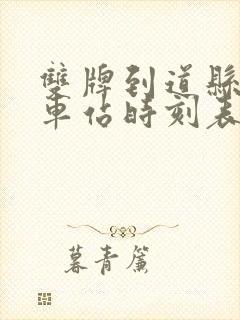 雙牌到道縣
車站時刻表
暮青簾